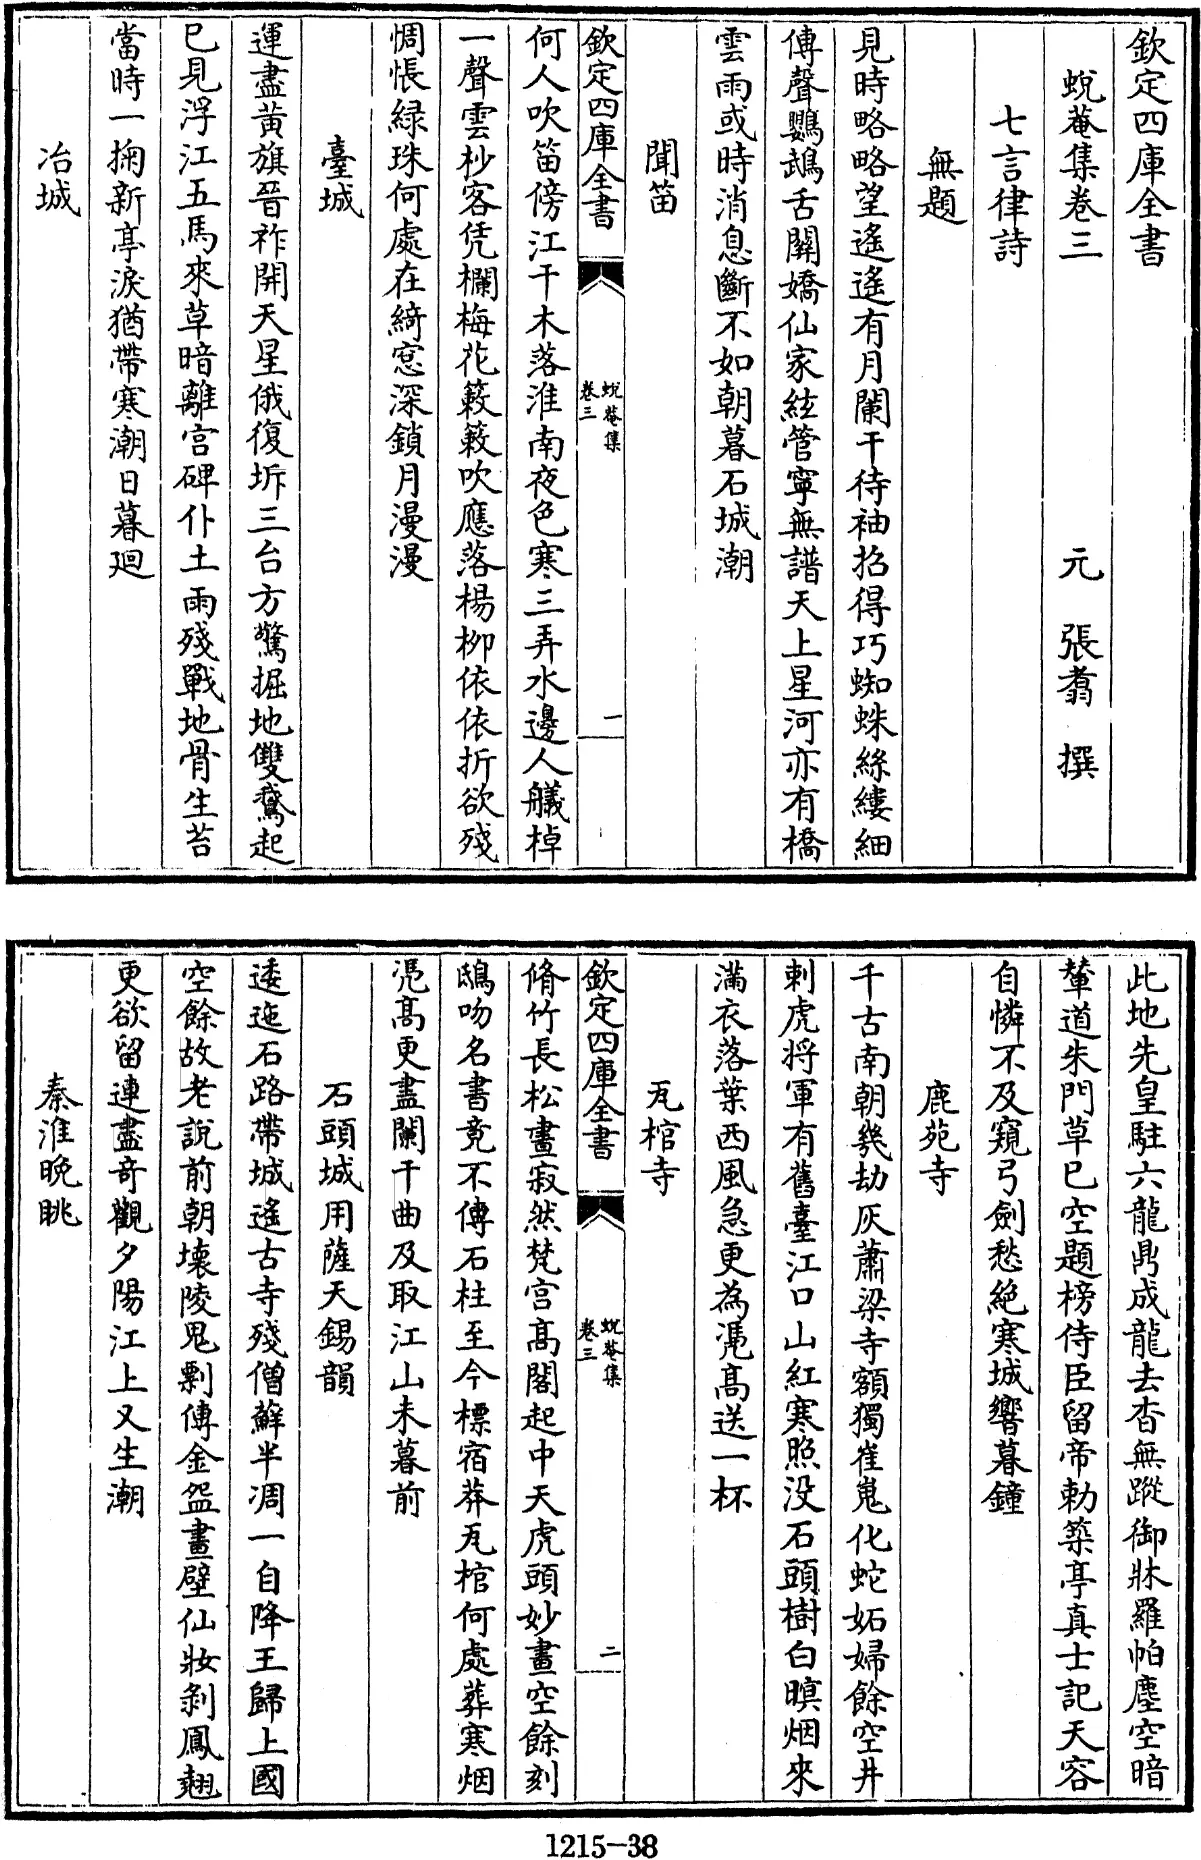 欽定四庫全書
蛻菴集卷三
元 張翥 撰
七言律詩
無題
見時略略望遙遙有月闌干待袖招得巧蜘蛛絲縷細
傳聲鸚鵡舌關嬌仙家絃管寧無譜天上星河亦有橋
雲雨或時消息斷不如朝暮石城潮
聞笛
欽定四庫全書
蛻菴集
卷三
一
何人吹笛傍江干木落淮南夜色寒三弄水邊人艤棹
一聲雲杪客凭欄梅花簌簌吹應落楊柳依依折欲殘
惆悵緑珠何處在綺窓深鎖月漫漫
臺城
運盡黃旗晉祚開天星俄復坼三台方驚掘地雙鵞起
已見浮江五馬來草暗離宫碑仆土雨殘戰地骨生苔
當時一掬新亭淚猶帶寒潮日暮迴
冶城
此地先皇駐六龍鼎成龍去杳無蹤御牀羅帕塵空暗
輦道朱門草已空題榜侍臣留帝勅築亭真士記天容
自憐不及窺弓劍愁絶寒城響暮鐘
鹿苑寺
千古南朝幾劫灰蕭梁寺額獨崔嵬化蛇妬婦餘空井
刺虎將軍有舊臺江口山紅寒照没石頭樹白暝烟來
滿衣落葉西風急更為凴高送一杯
瓦棺寺
欽定四庫全書
蛻菴集
卷三
二
脩竹長松晝寂然梵宫高閣起中天虎頭妙畫空餘刻
鴟吻名書竟不傳石柱至今標宿莽瓦棺何處葬寒烟
凴高更盡闌干曲及取江山未暮前
石頭城用薩天錫韻
逶迤石路帶城遙古寺殘僧蘚半凋一自降王歸上國
空餘故老說前朝壞陵鬼剽傳金盌畫壁仙妝剝鳳翹
更欲留連盡奇觀夕陽江上又生潮
秦淮晚眺
1215-38